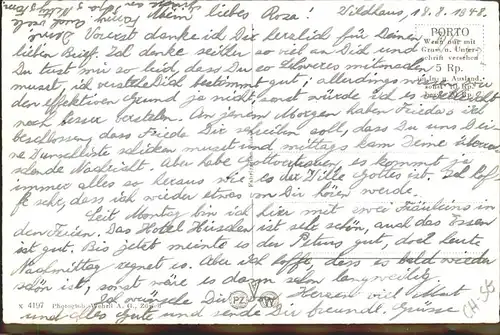 Mein liebes Rosa! Wildhaus, 18.8.1948.
Vorerst danke ich Dir herzlich für Deinen
lieben Brief. Ich denke seither so viel an Dich und
Du tust mir so leid, dass Du so Schweres mitmachen
musst, ich verstehe Dich bestimmt gut, allerdings
den effektiven Grund ja nicht, sonst würde ich es vielleicht
noch besser verstehen. An jenem Morgen haben Frieda & ich
beschlossen, dass Frieda Dir schreiben soll, dass Du uns Dei-
ne schicken musst und mittags kam Deine
Nachricht. Aber habe Gottvertrauen, es kommt ja
immer alles so heraus wie es der Wille Gottes ist. Ich hof-
fe sehr, dass ich wieder etwas von Dir hören werde.
Seit Montag bin ich hier mit zwei Fräuleins in
den Ferien. Das Hotel Hirschen ist sehr schön, auch das Essen
ist gut. Bis jetzt meinte es der Petrus gut, doch heute
Nachmittag regnet es. Aber ich hoffe, dass es bald wieder
schön ist, sonst wäre es dann sehr langweilig.
Ich wünsche Dir von Herzen viel Mut
und alles Gute und sende Dir freundl. Grüsse
PORTO
Wenn nur mit
Gruss u. Unter-
schrift versehen
5 Rp.
u. Ausland,
sonst 10 Rp.
X 4197 Photoglob-Wehrli A. G., Zürich
PZ W
CH-St